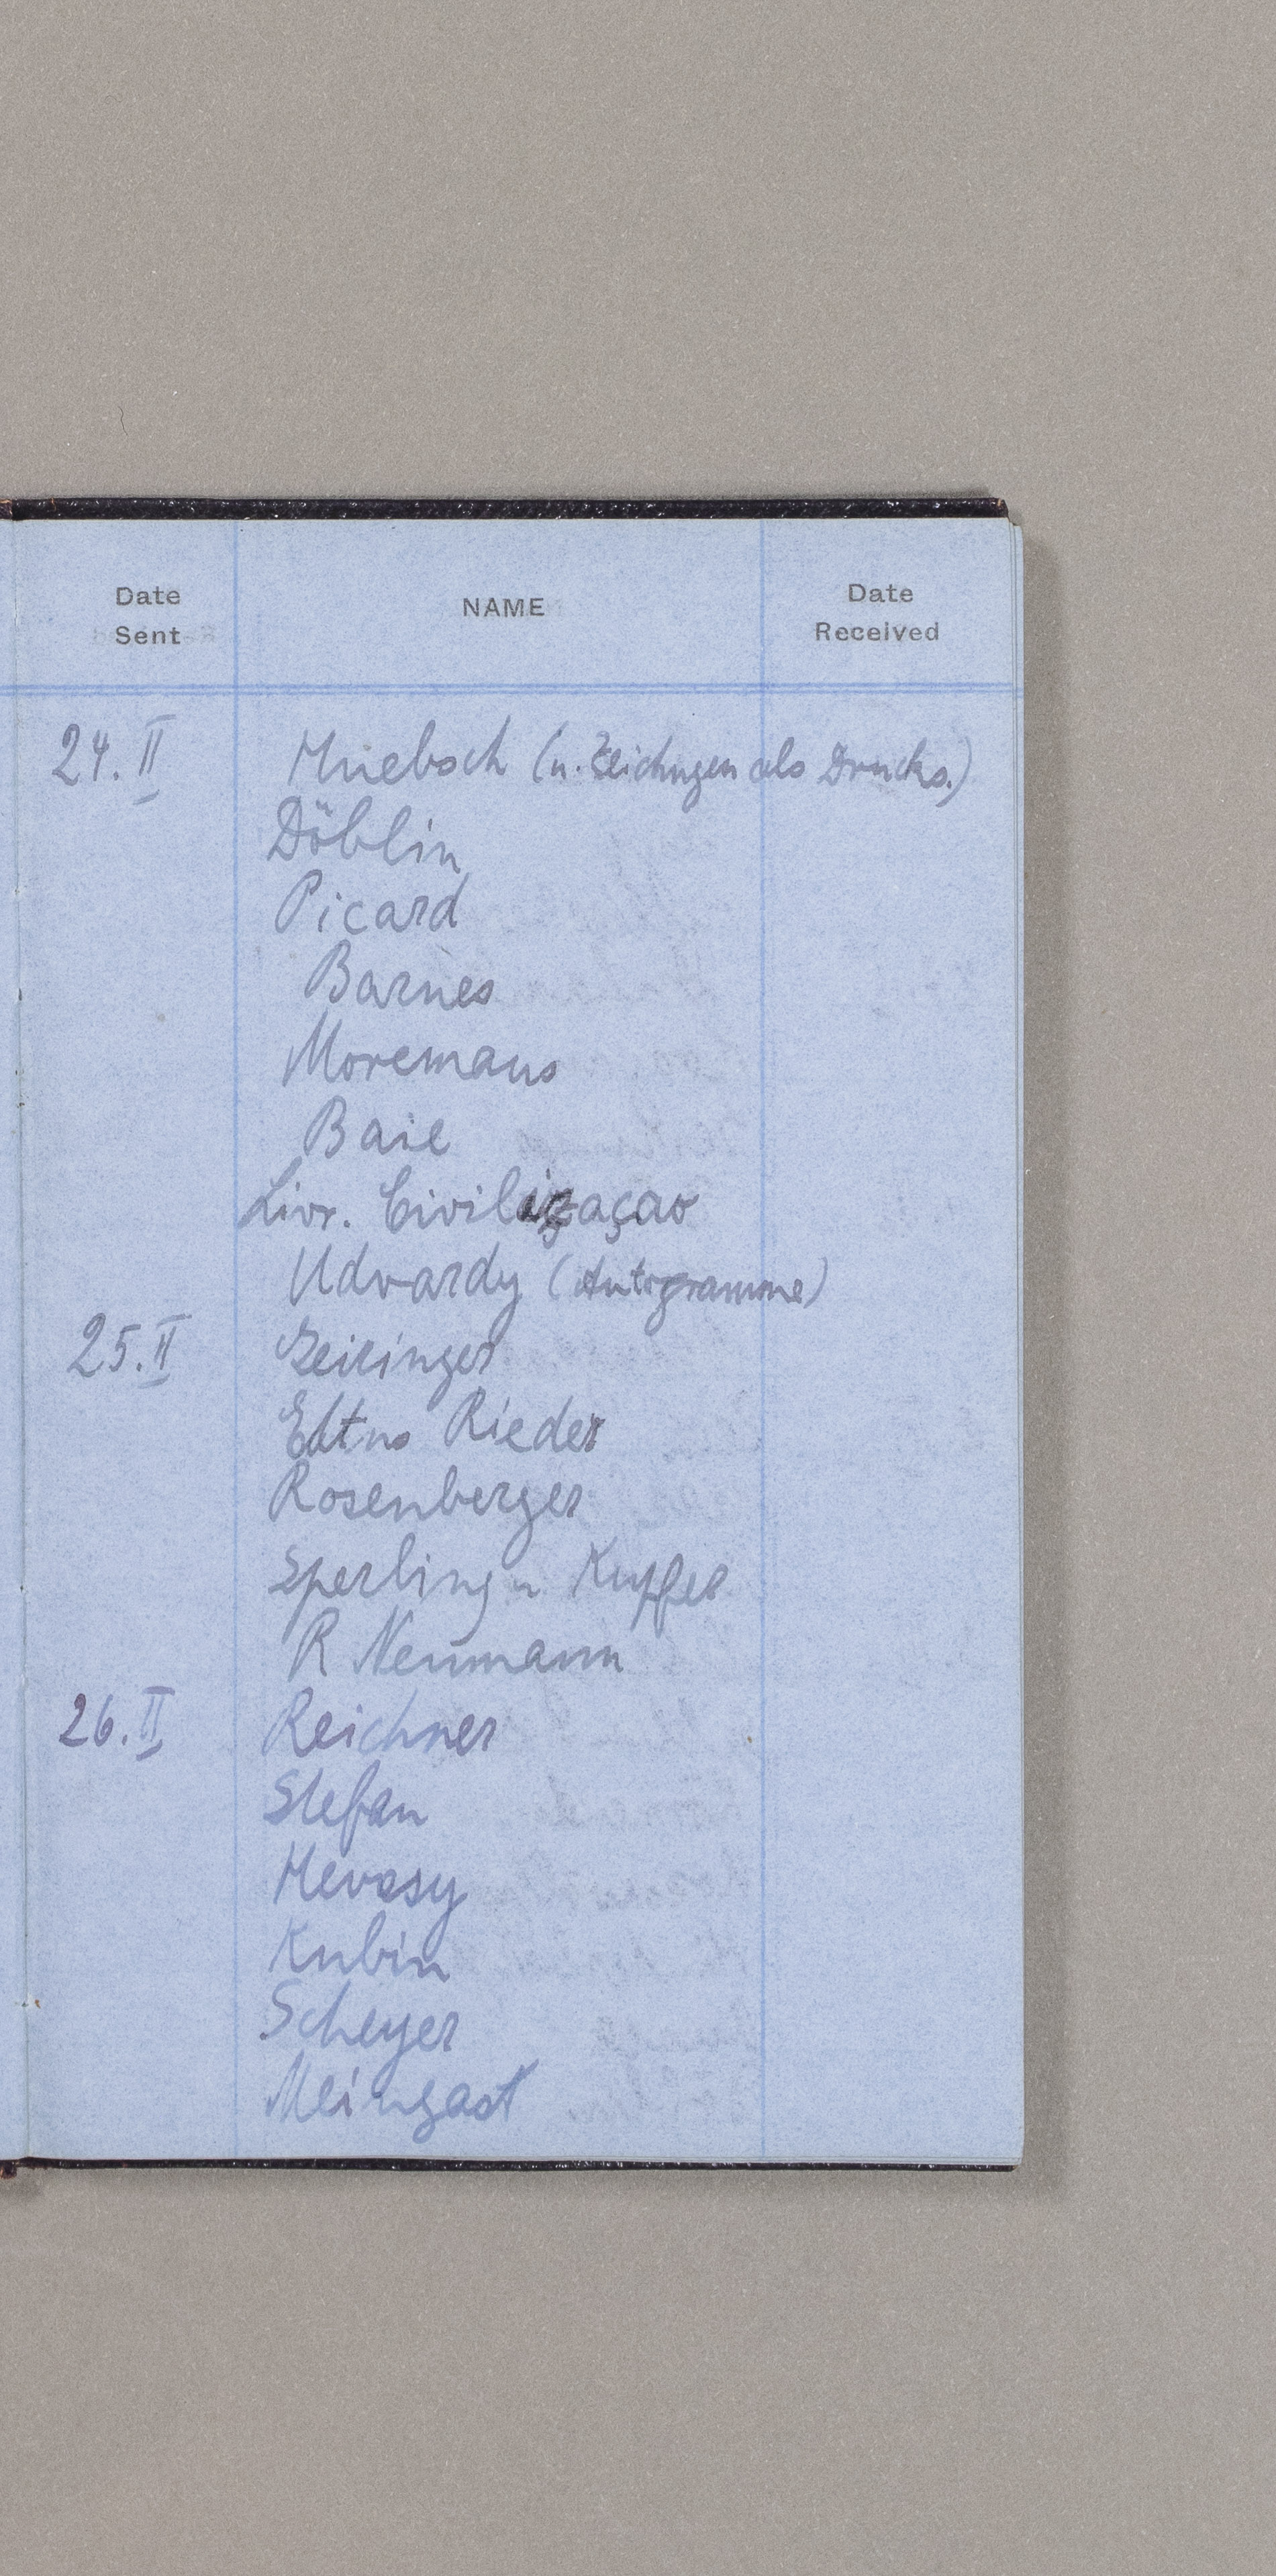 Date Sent NAME Date Received
24. II Hueboch (u. Zeichngen als Drucks.)
Döblin
Picard
Barnes
Moremans
Baie
Livr. Civilizaçao
Udvardy (Autogramme)
25. II Geiringer
Edtns Rieder
Rosenberger
Sperling u Kupfer
R Neumann
26. II Reichner
Stefan
Hevesy
Kubin
Scheyer
Meingast